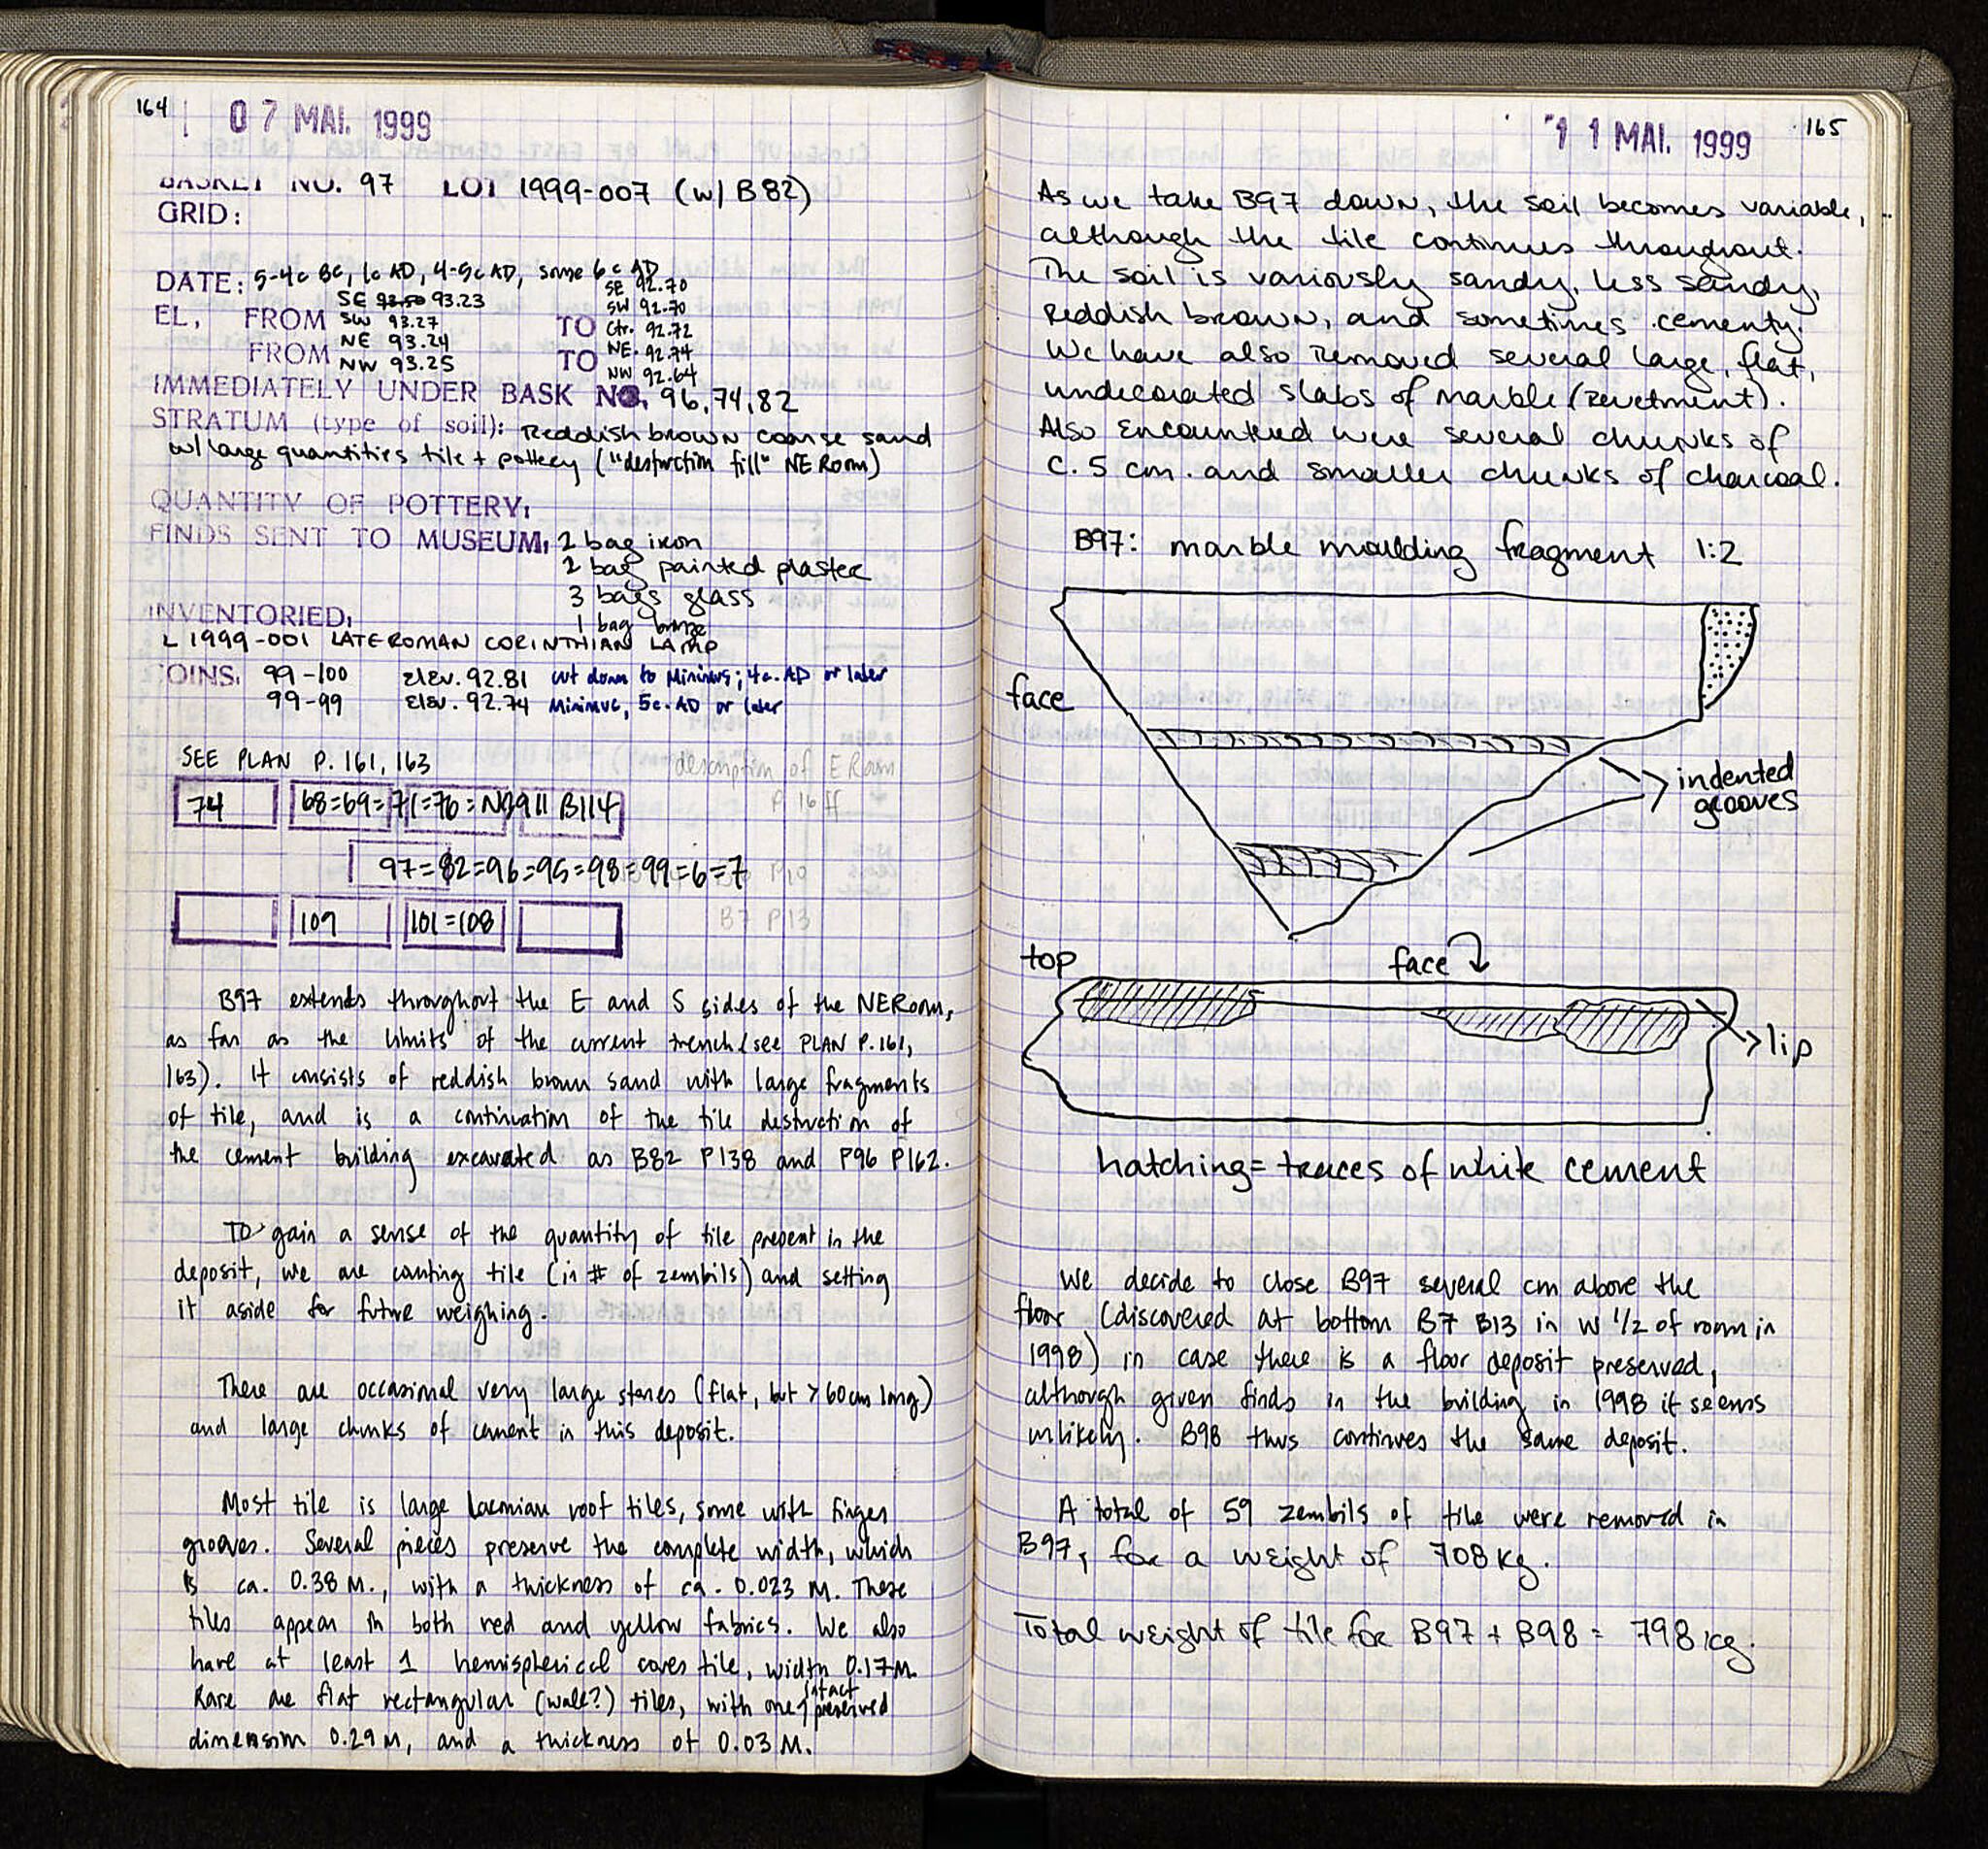 164
07 MAI. 1999
BASKET NO. 97 LOT 1999-007 (w/ B82)
GRID:
DATE: 5-4c BC, 1c AD, 4-5c AD, some 6c AD
EL, FROM SE 93.50 93.23 TO SE 92.70
SW 93.27 SW 92.70
Ctr. 92.72
FROM NE 93.24 TO NE. 92.74
NW 93.25 NW 92.64
IMMEDIATELY UNDER BASK NO. 96, 74, 82
STRATUM (type of soil): Reddish brown coarse sand
w/ large quantities tile + pottery ("destruction fill" NE Room)
QUANTITY OF POTTERY:
FINDS SENT TO MUSEUM: 2 bag iron
2 bag painted plaster
3 bags glass
1 bag bronze
INVENTORIED:
L 1999-001 LATE ROMAN CORINTHIAN LAMP
COINS: 99-100 Elev. 92.81 cut down to Minimus; 4c. AD or later
99-99 Elev. 92.74 Minimus, 5c. AD or later
SEE PLAN P. 161, 163
description of E Room
P. 16 ff
74 68=69=71=76= B114
97=82=96=95=98=99=6=7
P10
109 101=108
B7 P13
B97 extends throughout the E and S sides of the NE Room,
as far as the limits of the current trench (see PLAN P. 161,
163). It consists of reddish brown sand with large fragments
of tile, and is a continuation of the tile destruction of
the cement building excavated as B82 P138 and P96 P162.
To gain a sense of the quantity of tile present in the
deposit, we are counting tile (in # of zembils) and setting
it aside for future weighing.
There are occasional very large stones (flat, but >60cm long)
and large chunks of cement in this deposit.
Most tile is large Laconian roof tiles, some with finger
grooves. Several pieces preserve the complete width, which
is ca. 0.38 M., with a thickness of ca. 0.023 M. These
tiles appear in both red and yellow fabrics. We also
have at least 1 hemispherical cover tile, width 0.17M.
Rare are flat rectangular (wall?) tiles, with one intact preserved
dimension 0.29M, and a thickness of 0.03 M.
11 MAI. 1999
165
As we take B97 down, the soil becomes variable,
although the tile continues throughout.
The soil is variously sandy, less sandy,
reddish brown, and sometimes cementy.
We have also removed several large, flat,
undecorated slabs of marble (revetment).
Also encountered were several chunks of
c. 5 cm. and smaller chunks of charcoal.
B97: marble moulding fragment 1:2
face
indented
grooves
top
face
lip
hatching = traces of white cement
We decide to close B97 several cm above the
floor (discovered at bottom B7 B13 in W 1/2 of room in
1998) in case there is a floor deposit preserved,
although given finds in the building in 1998 it seems
unlikely. B98 thus continues the same deposit.
A total of 59 zembils of tile were removed in
B97, for a weight of 708 kg.
Total weight of tile for B97 + B98 = 798 kg.